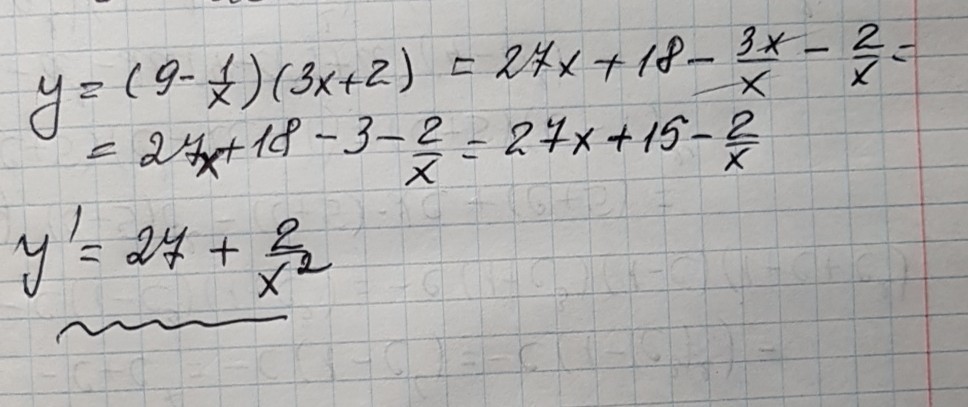 y = (9 - 1/x)(3x+2) = 27x + 18 - 3x/x - 2/x =
= 27x + 18 - 3 - 2/x = 27x + 15 - 2/x
y' = 27 + 2/x²